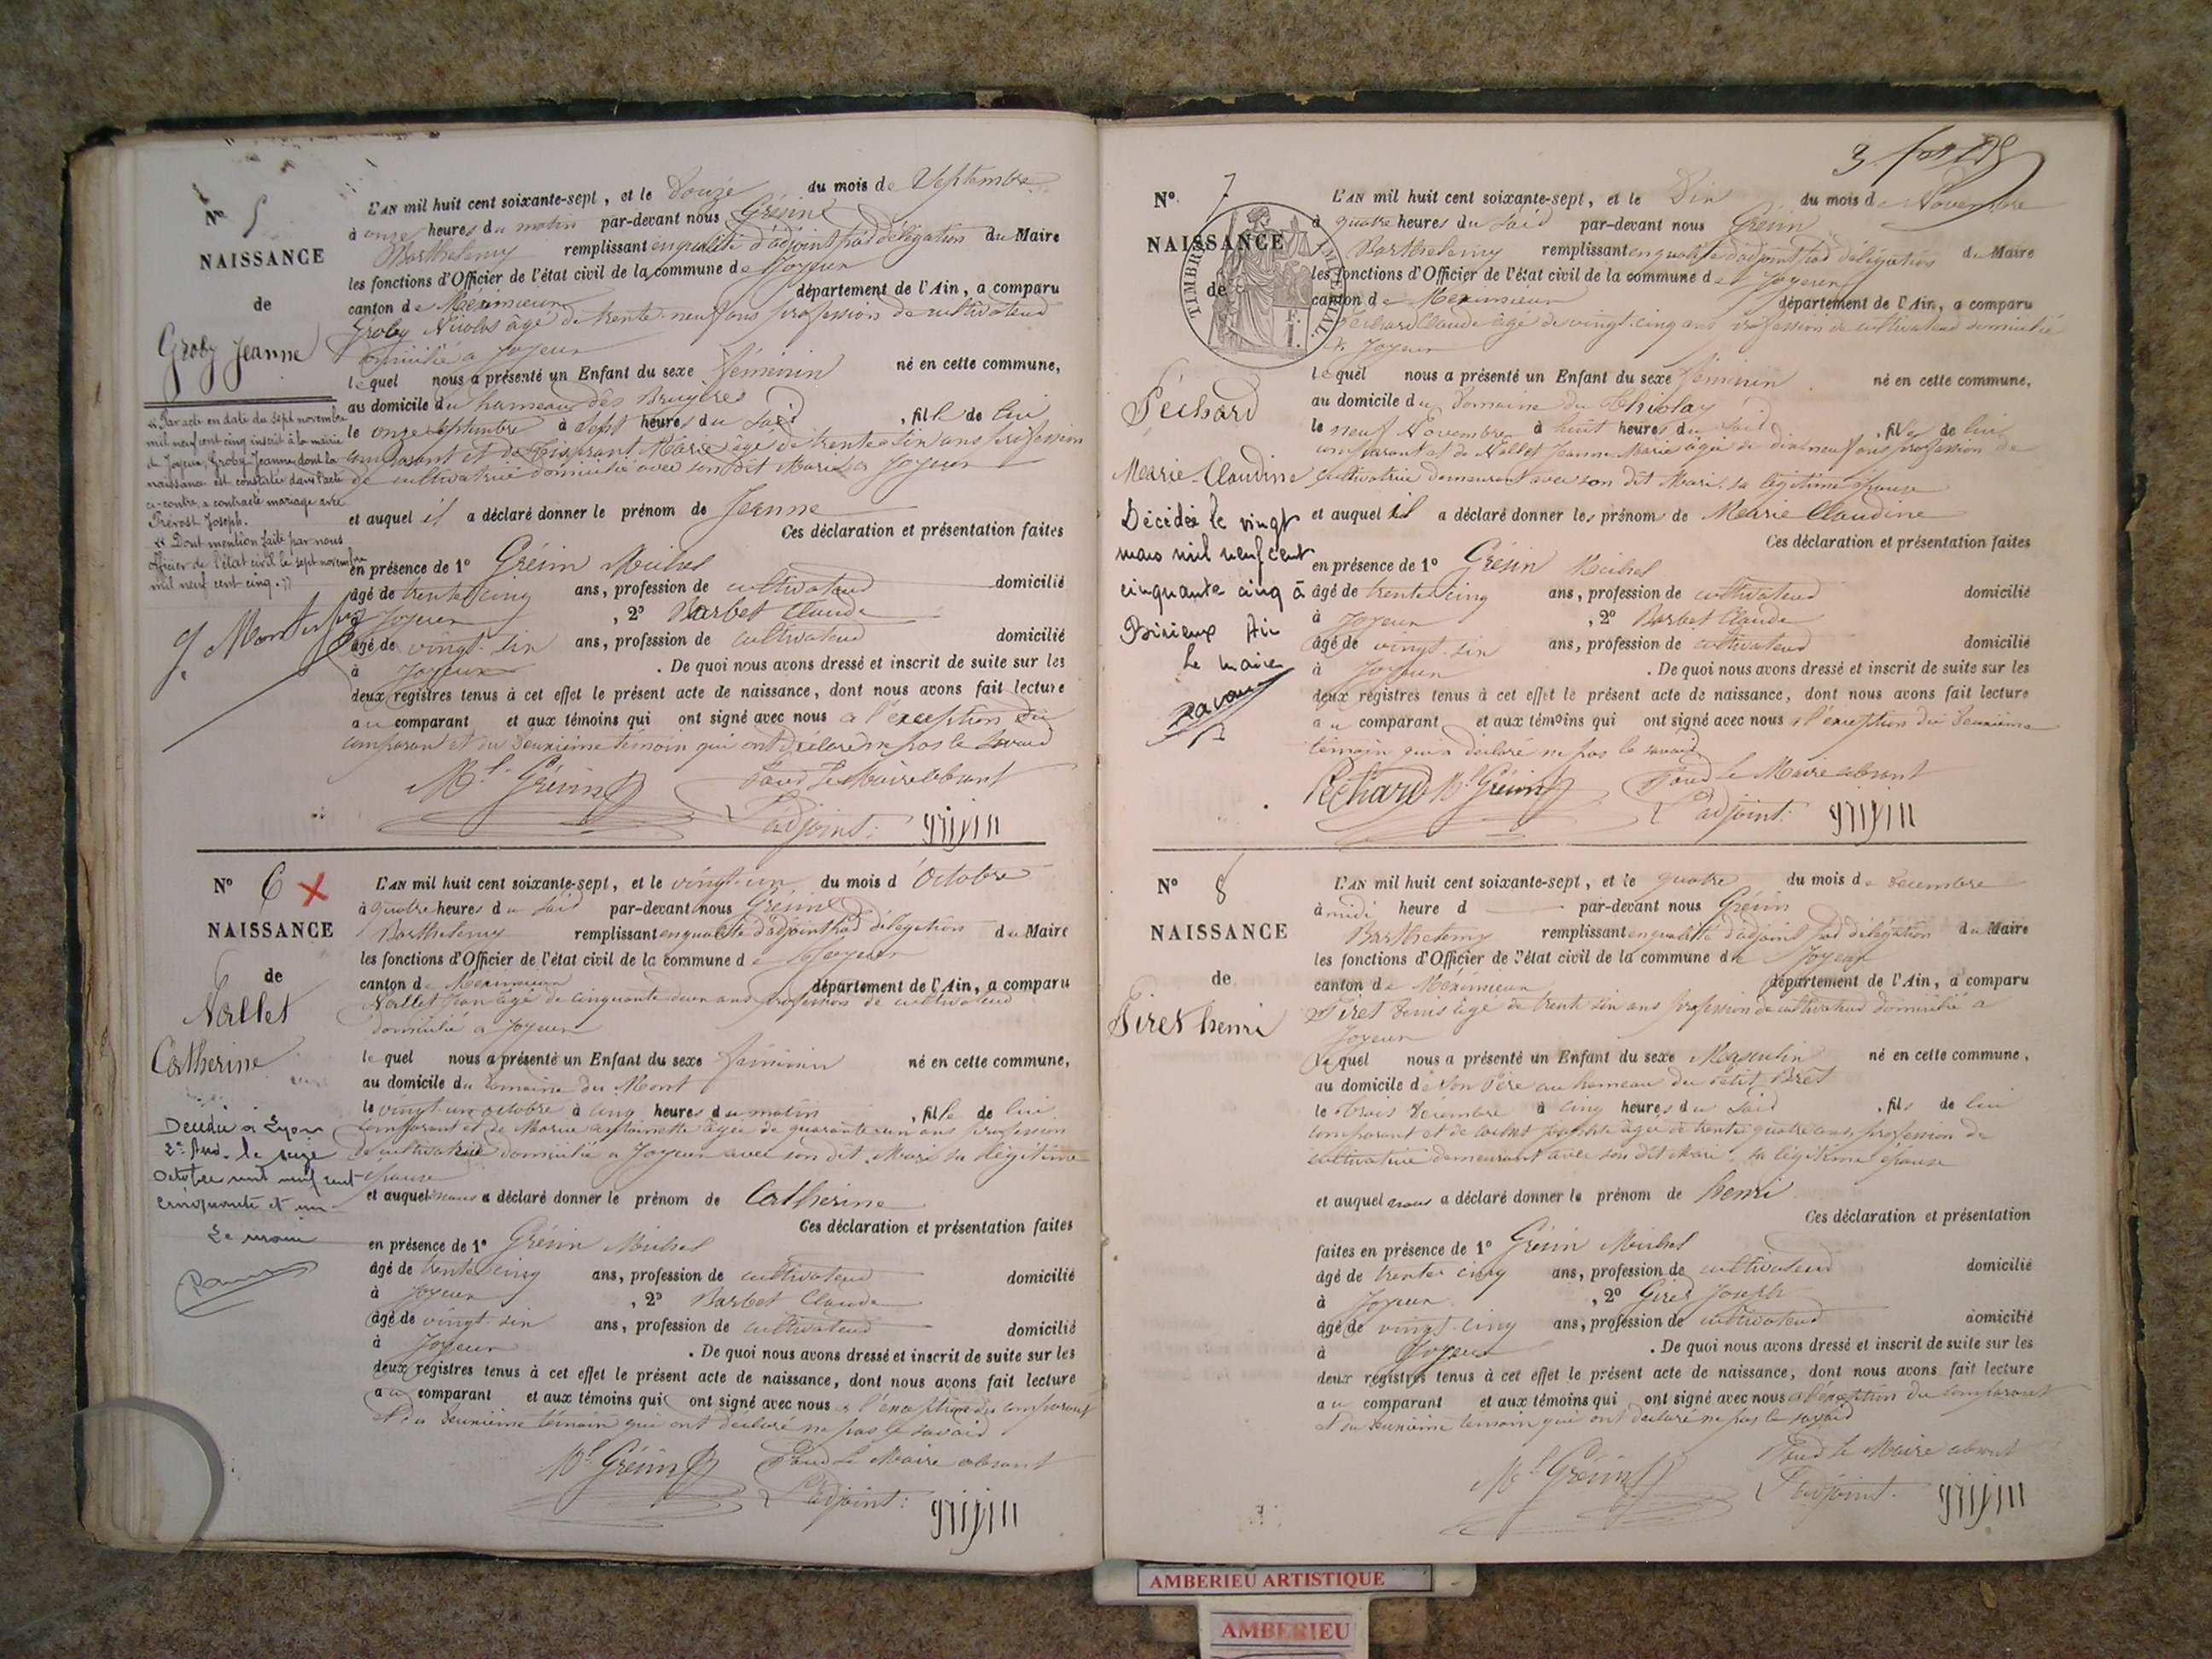 N° 5
NAISSANCE
de
Groby Jeanne
"Par acte en date du sept novembre
mil neuf cent cinq inscrit à la mairie
de Joyeux, Groby Jeanne, dont la
naissance est constatée dans l'acte
ci-contre, a contracté mariage avec
Prévost Joseph.
"Dont mention faite par nous
officier de l'état civil le sept novembre
mil neuf cent cinq."
L'AN mil huit cent soixante-sept, et le Douze du mois de Septembre
à onze heures du matin par-devant nous Grésin
Barthelemy remplissant en qualité d'adjoint par délégation du Maire
les fonctions d'Officier de l'état civil de la commune de Joyeux
canton de Meximieux département de l'Ain, a comparu
Groby Nicolas âgé de trente-neuf ans profession de cultivateur
domicilié a Joyeux
lequel nous a présenté un Enfant du sexe féminin né en cette commune,
au domicile du hameau des Bruyères
le onze septembre à sept heures du soir, fille de lui
comparant et de Marie âgée de trente six ans profession
de cultivatrice domiciliée avec son dit Mari a Joyeux
et auquel il a déclaré donner le prénom de Jeanne
Ces déclaration et présentation faites
en présence de 1° Grésin Michel
âgé de trente cinq ans, profession de cultivateur domicilié
à Joyeux, 2° Barbet Claude
âgé de vingt-six ans, profession de cultivateur domicilié
à Joyeux. De quoi nous avons dressé et inscrit de suite sur les
deux registres tenus à cet effet le présent acte de naissance, dont nous avons fait lecture
au comparant et aux témoins qui ont signé avec nous a l'exception du
comparant et du deuxième témoin qui ont déclaré ne pas le savoir
Ml Grésin Pour Le Maire absent
L'adjoint: grisin
N° 6 X
NAISSANCE
de
Nallet
Catherine
Décédée à Lyon
2e Arrd. le seize
Octobre mil neuf cent
cinquante et un
Le maire
L'AN mil huit cent soixante-sept, et le vingt-un du mois d'Octobre
à quatre heures du soir par-devant nous Grésin
Barthelemy remplissant en qualité d'adjoint par délégation du Maire
les fonctions d'Officier de l'état civil de la commune de Joyeux
canton de Meximieux département de l'Ain, a comparu
Nallet Jean âgé de cinquante deux ans profession de cultivateur
domicilié a Joyeux
lequel nous a présenté un Enfant du sexe féminin né en cette commune,
au domicile du Domaine du Mont
le vingt-un octobre à cinq heures du matin, fille de lui
comparant et de antoinette âgée de quarante un ans profession
de cultivatrice domiciliée a Joyeux avec son dit Mari sa légitime
épouse
et auquel nous a déclaré donner le prénom de Catherine
Ces déclaration et présentation faites
en présence de 1° Grésin Michel
âgé de trente cinq ans, profession de cultivateur domicilié
à Joyeux, 2° Barbet Claude
âgé de vingt-six ans, profession de cultivateur domicilié
à Joyeux. De quoi nous avons dressé et inscrit de suite sur les
deux registres tenus à cet effet le présent acte de naissance, dont nous avons fait lecture
au comparant et aux témoins qui ont signé avec nous a l'exception du comparant
et du deuxième témoin qui ont déclaré ne pas le savoir
Ml Grésin Pour Le Maire absent
L'adjoint: grisin
N° 7
NAISSANCE
de
TIMBRE IMPERIAL
Péchard
Marie-Claudine
Décédée le vingt
mars mil neuf cent
cinquante cinq à
Birieux Ain
Le maire
L'AN mil huit cent soixante-sept, et le Dix du mois de Novembre
à quatre heures du soir par-devant nous Grésin
Barthelemy remplissant en qualité d'adjoint par délégation du Maire
les fonctions d'Officier de l'état civil de la commune de Joyeux
canton de Meximieux département de l'Ain, a comparu
Péchard Claude âgé de vingt-cinq ans profession de cultivateur domicilié
a Joyeux
lequel nous a présenté un Enfant du sexe féminin né en cette commune,
au domicile du Domaine du Thiolay
le neuf Novembre à huit heures du soir, fille de lui
comparant et de Nallet Jeanne Marie âgée de dix neuf ans profession de
cultivatrice demeurant avec son dit Mari sa légitime épouse
et auquel il a déclaré donner les prénoms de Marie Claudine
Ces déclaration et présentation faites
en présence de 1° Grésin Michel
âgé de trente cinq ans, profession de cultivateur domicilié
à Joyeux, 2° Barbet Claude
âgé de vingt-six ans, profession de cultivateur domicilié
à Joyeux. De quoi nous avons dressé et inscrit de suite sur les
deux registres tenus à cet effet le présent acte de naissance, dont nous avons fait lecture
au comparant et aux témoins qui ont signé avec nous a l'exception du deuxième
témoin qui a déclaré ne pas le savoir
Péchard Ml Grésin Pour Le Maire absent
L'adjoint: grisin
N° 8
NAISSANCE
de
Firet henri
L'AN mil huit cent soixante-sept, et le quatre du mois de Décembre
à midi heure d par-devant nous Grésin
Barthelemy remplissant en qualité d'adjoint par délégation du Maire
les fonctions d'Officier de l'état civil de la commune de Joyeux
canton de Méximieux département de l'Ain, a comparu
Firet Denis âgé de trente six ans profession de cultivateur domicilié a
Joyeux
lequel nous a présenté un Enfant du sexe Masculin né en cette commune,
au domicile de son Père au hameau du Petit Bret
le trois Décembre à cinq heures du soir, fils de lui
comparant et de âgée de trente quatre ans profession de
cultivatrice demeurant avec son dit Mari sa légitime épouse
et auquel nous a déclaré donner le prénom de henri
Ces déclaration et présentation
faites en présence de 1° Grésin Michel
âgé de trente cinq ans, profession de cultivateur domicilié
à Joyeux, 2° Joseph
âgé de vingt-cinq ans, profession de cultivateur domicilié
à Joyeux. De quoi nous avons dressé et inscrit de suite sur les
deux registres tenus à cet effet le présent acte de naissance, dont nous avons fait lecture
au comparant et aux témoins qui ont signé avec nous a l'exception du comparant
et du deuxième témoin qui ont déclaré ne pas le savoir
Ml Grésin Pour le Maire absent
L'adjoint. grisin
AMBERIEU ARTISTIQUE
AMBERIEU